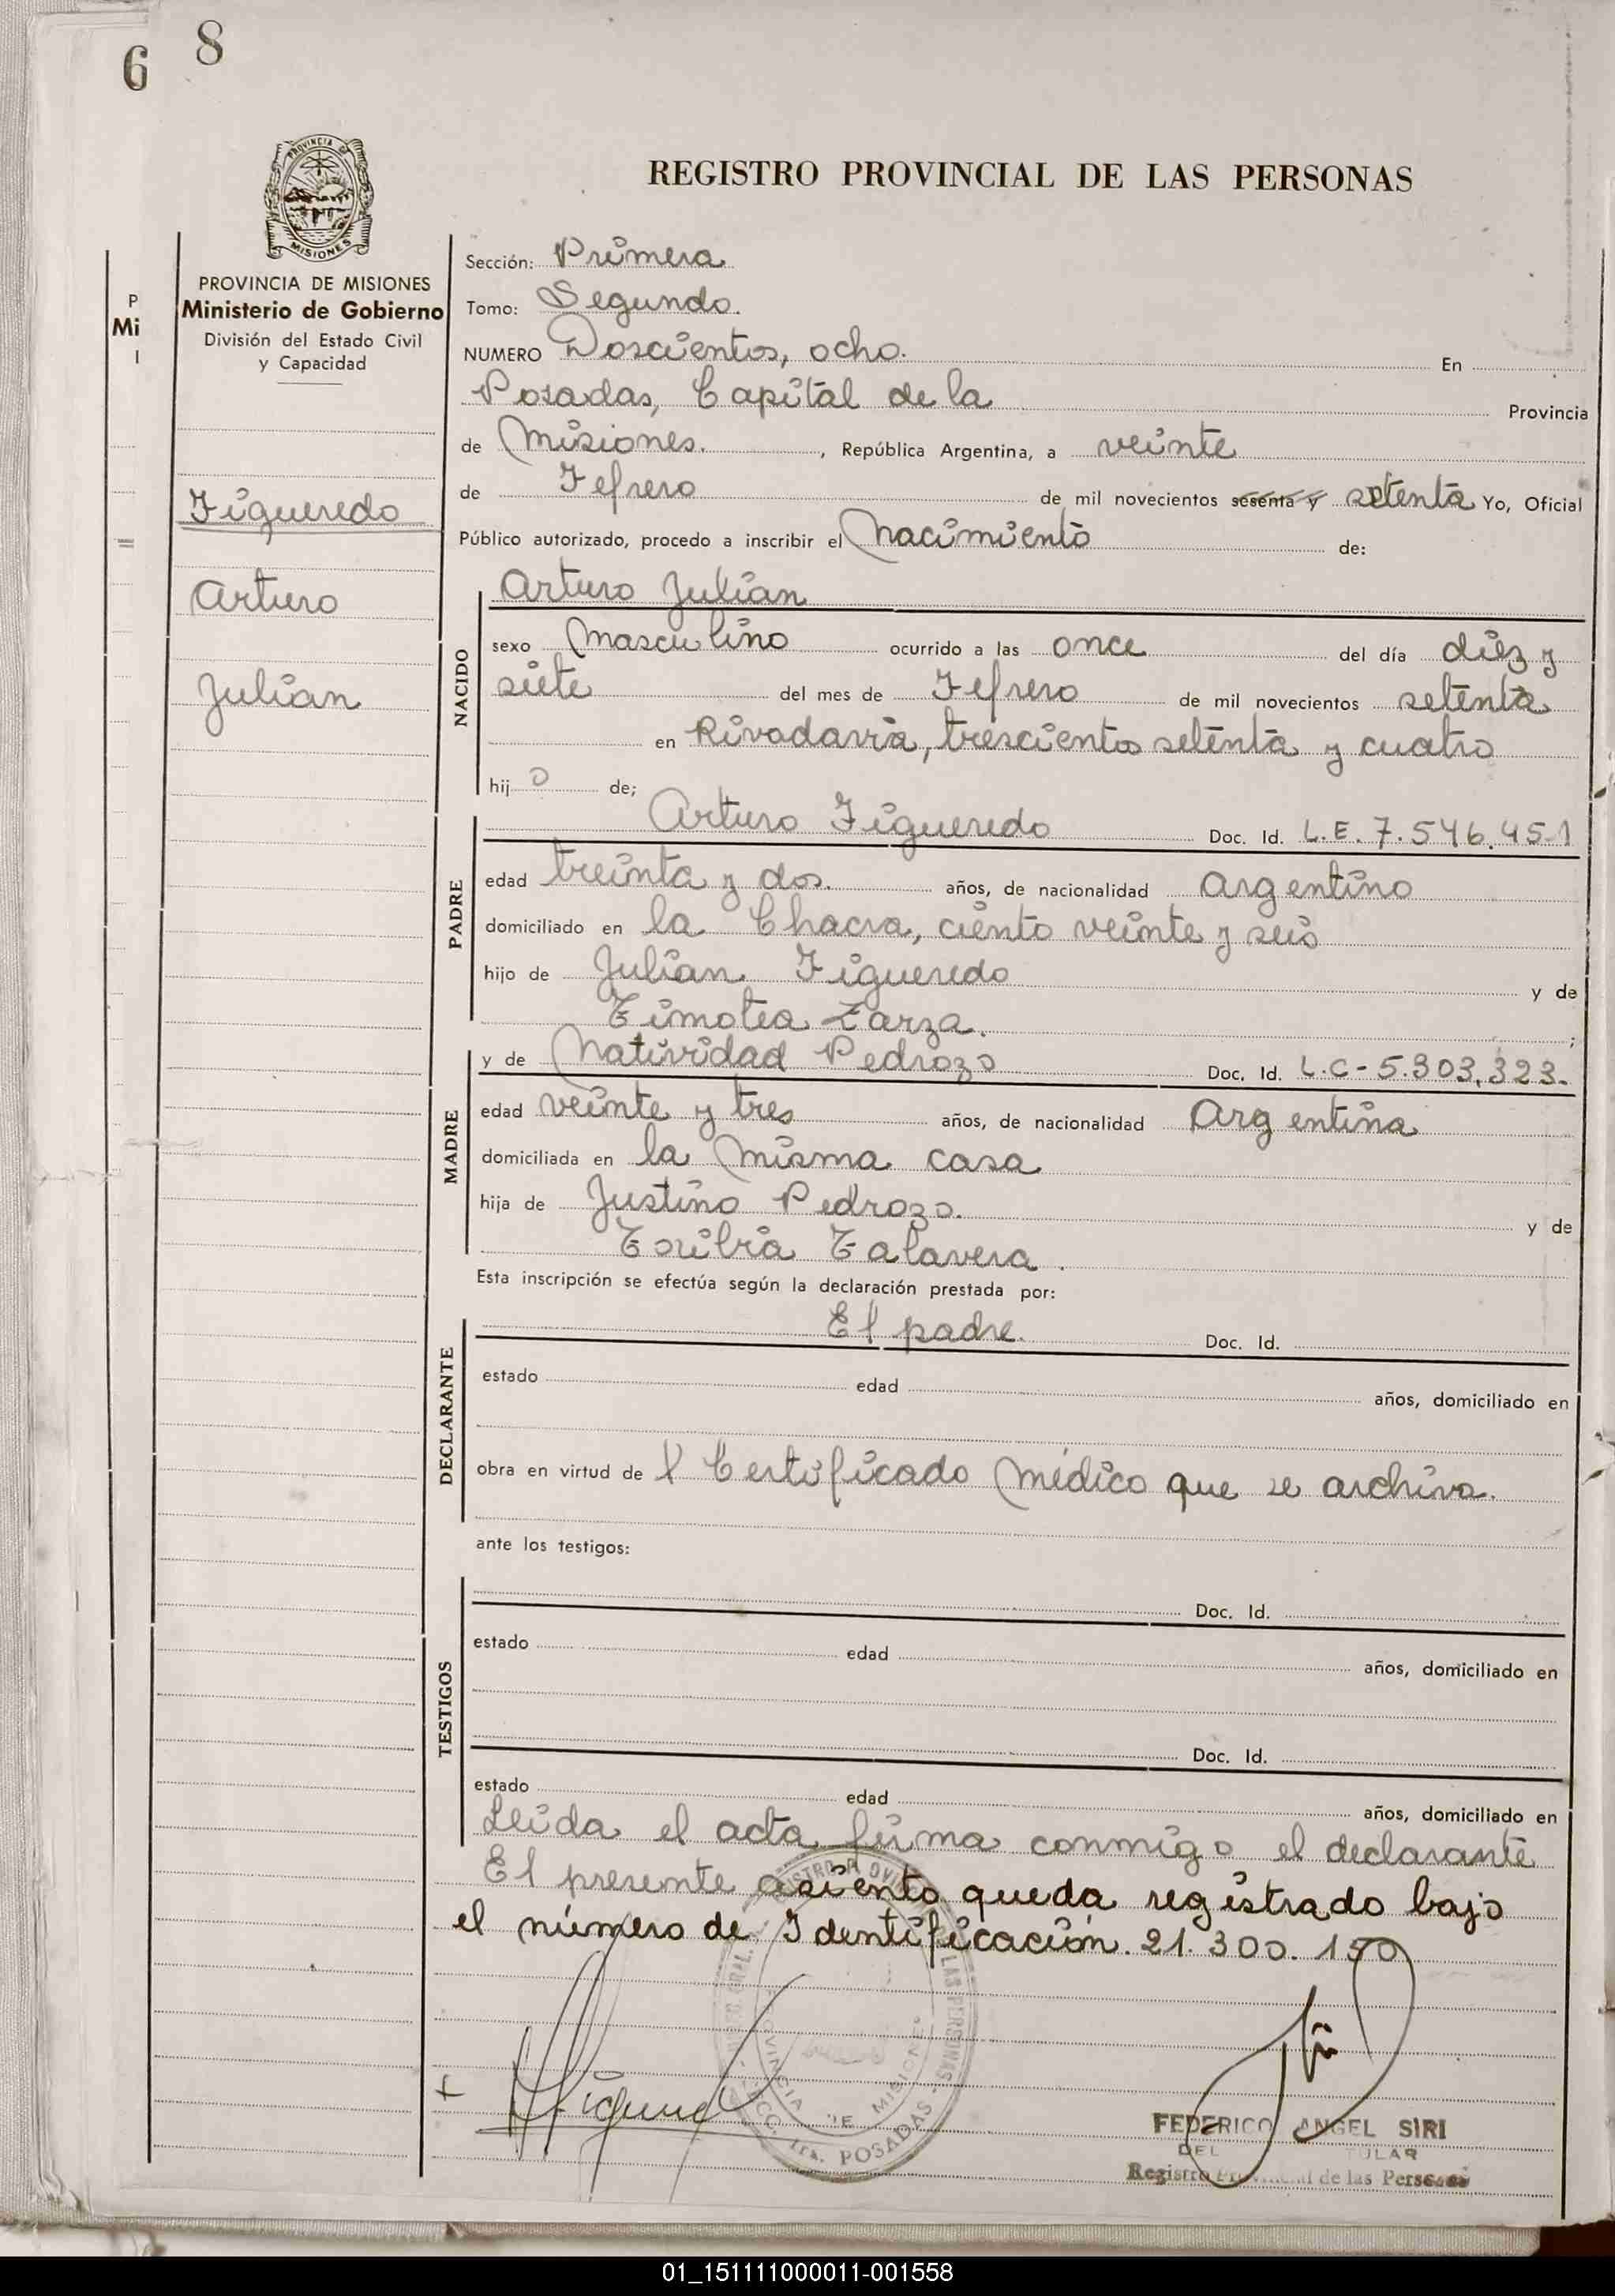 6 8
REGISTRO PROVINCIAL DE LAS PERSONAS
PROVINCIA DE
MISIONES
PROVINCIA DE MISIONES
Ministerio de Gobierno
División del Estado Civil
y Capacidad
P
Mi
I
Figueredo
Arturo
Julian
Sección: Primera
Tomo: Segundo.
NUMERO Doscientos, ocho. En
Posadas, Capital de la Provincia
de Misiones. , República Argentina, a veinte
de Fefrero de mil novecientos sesenta y setenta Yo, Oficial
Público autorizado, procedo a inscribir el Nacimiento de:
NACIDO
Arturo Julian
sexo Masculino ocurrido a las once del día diez y
siete del mes de Fefrero de mil novecientos setenta
en Rivadavia, trescientos setenta y cuatro
hij o de;
PADRE
Arturo Figueredo Doc. Id. L.E. 7.546.451
edad treinta y dos. años, de nacionalidad Argentino
domiciliado en la Chacra, ciento veinte y seis
hijo de Julian Figueredo y de
Timotea Zarza. ;
MADRE
y de Natividad Pedrozo Doc. Id. L.C-5.303.323.
edad veinte y tres años, de nacionalidad Argentina
domiciliada en la misma casa
hija de Justino Pedrozo. y de
Toribia Talavera.
Esta inscripción se efectúa según la declaración prestada por:
DECLARANTE
El padre. Doc. Id.
estado edad años, domiciliado en
obra en virtud de l Certificado Médico que se archiva.
ante los testigos:
TESTIGOS
Doc. Id.
estado edad años, domiciliado en
Doc. Id.
estado edad años, domiciliado en
Leida el acta firma conmigo el declarante
El presente asiento queda registrado bajo
el número de Identificación. 21.300.150
LAS PERSONAS
PROVINCIA DE MISIONES
POSADAS
FEDERICO ANGEL SIRI
DEL TULAR
Registro Provincial de las Personas
01_151111000011-001558